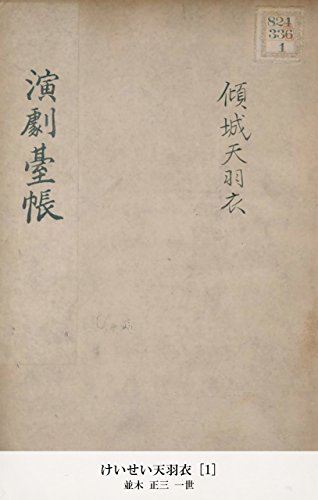 824
336
1
傾城天羽衣
演劇臺帳
けいせい天羽衣 [1]
並木 正三 一世